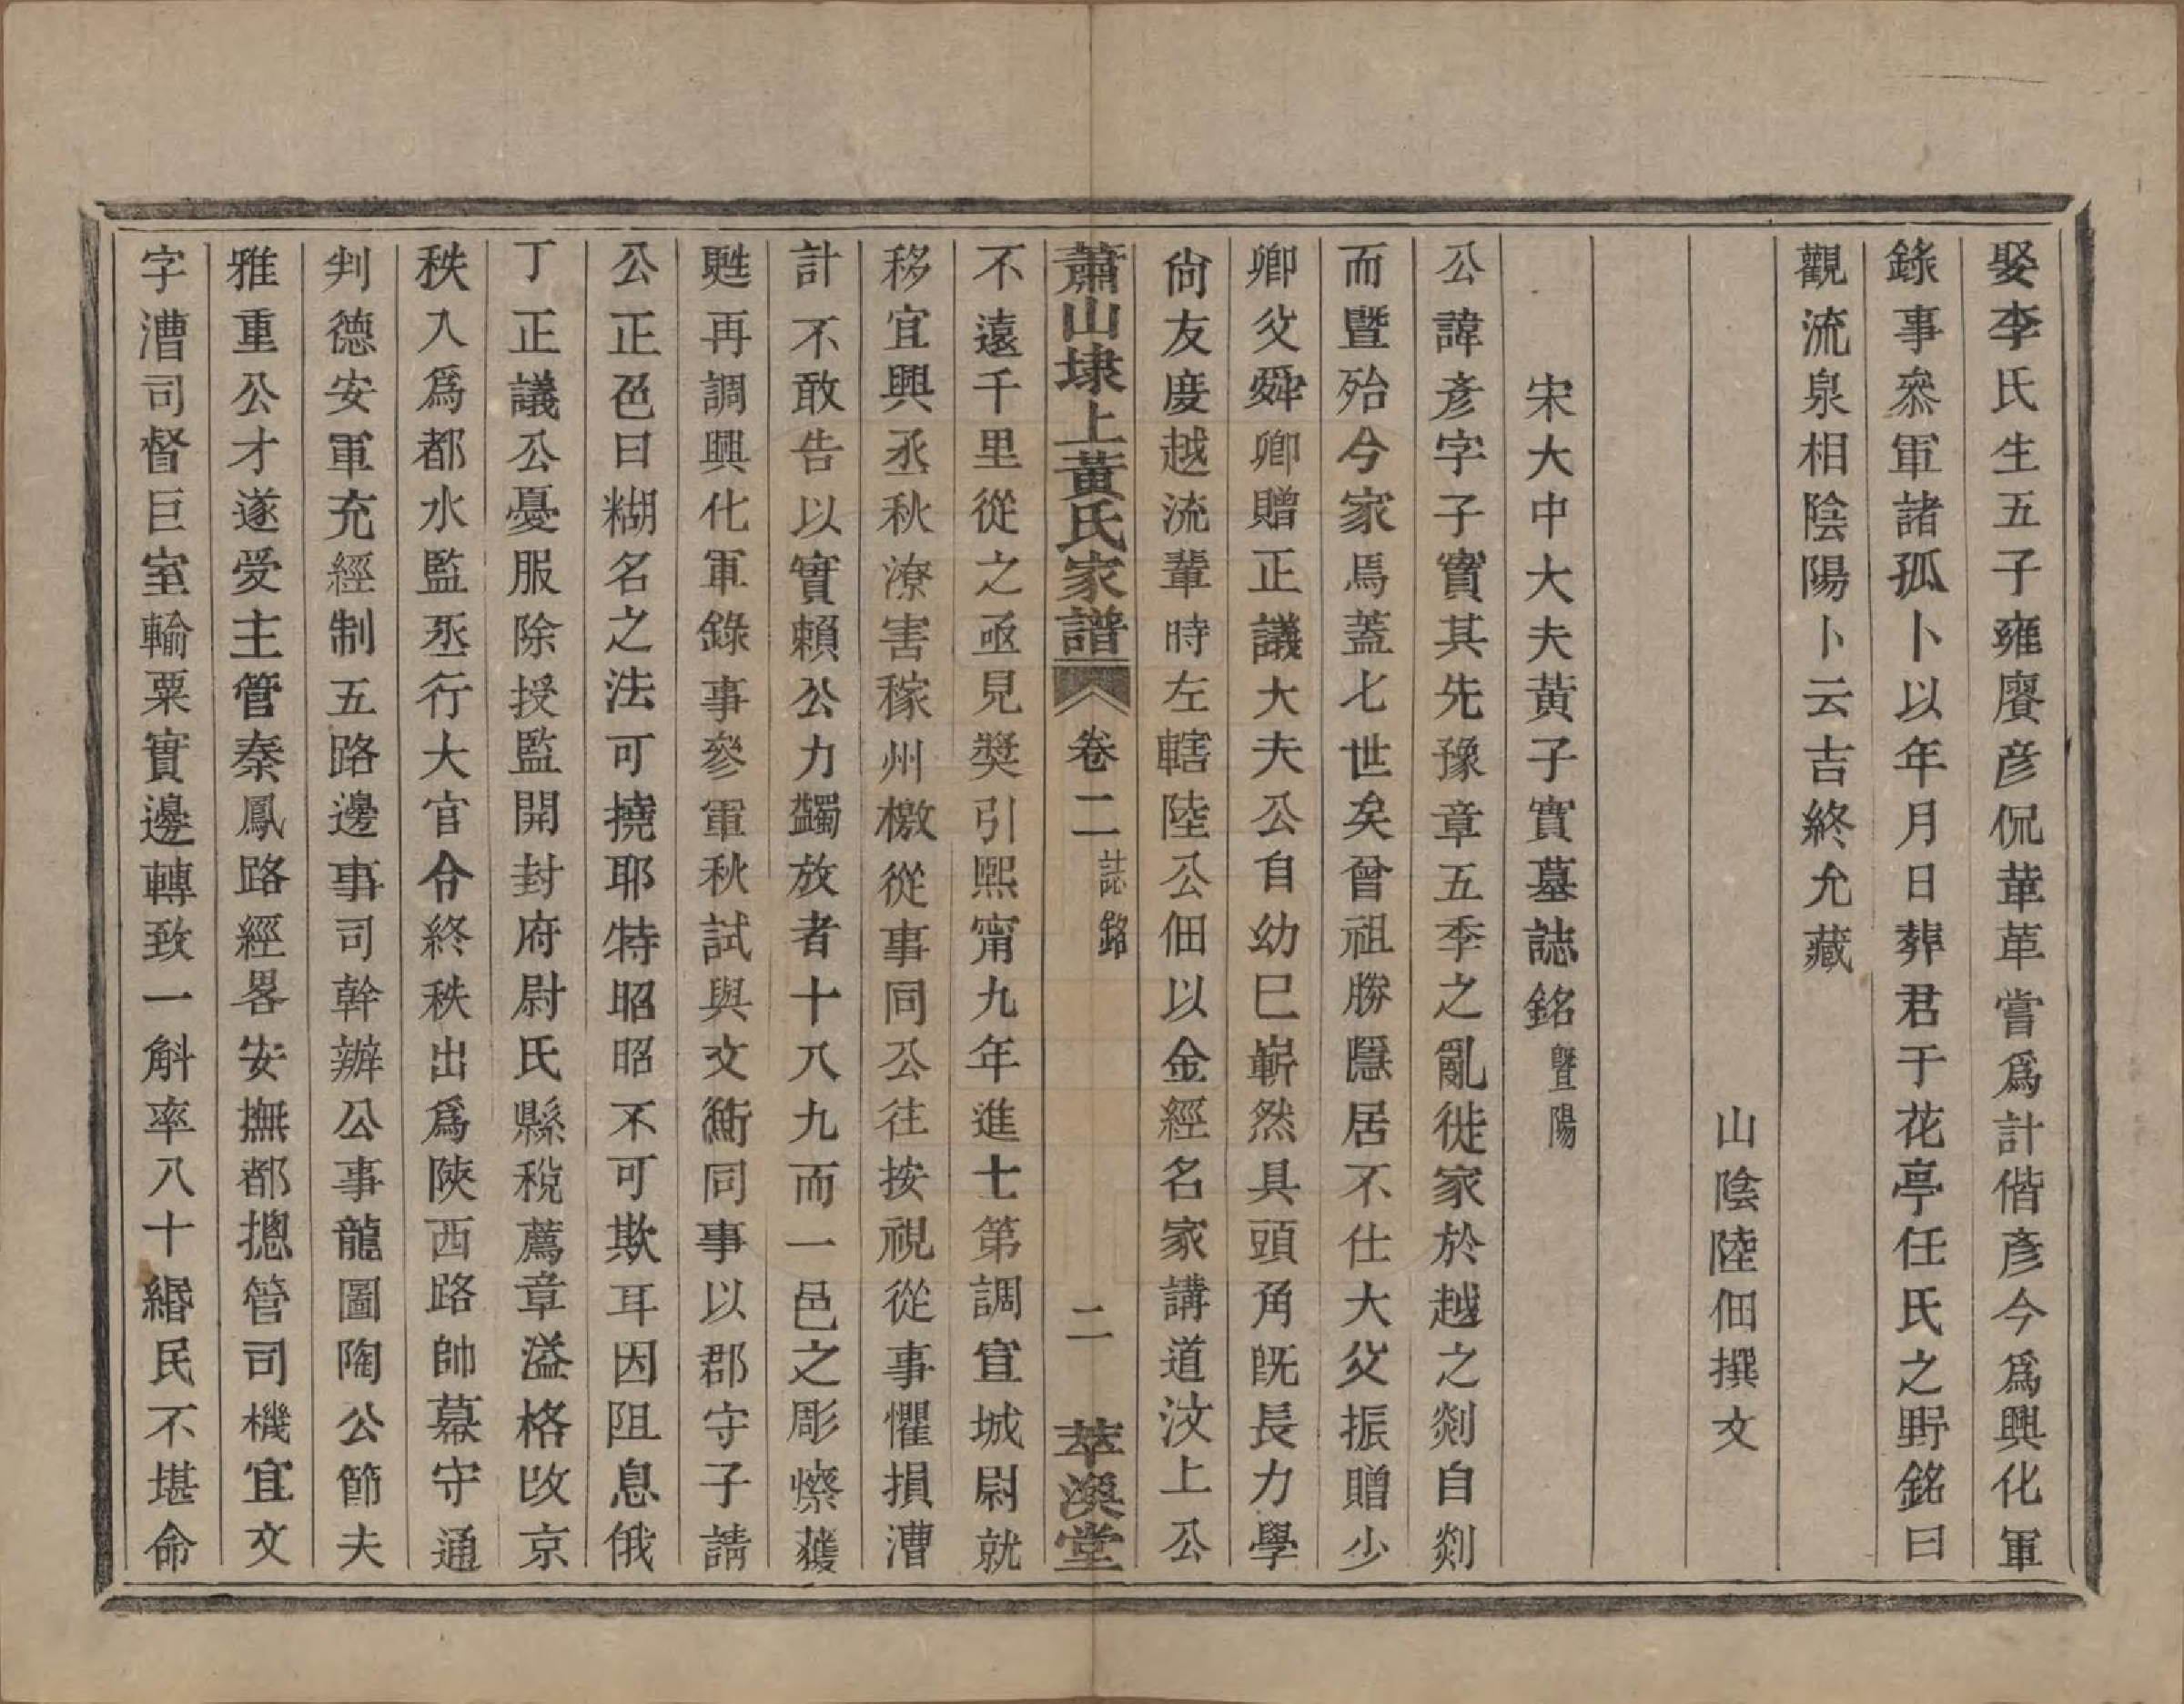 娶李氏生五子雍賡彦侃華革嘗爲計偕彥今爲興化軍
錄事叅軍諸孤卜以年月日葬君于花亭任氏之野銘曰
觀流泉相陰陽卜云吉終允藏
山陰陸佃撰文
宋大中大夫黃子實墓誌銘暨陽
公諱彥字子實其先豫章五季之亂徙家於越之剡自剡
而暨殆今家焉蓋七世矣曾祖勝隱居不仕大父振贈少
卿父舜卿贈正議大夫公自幼已嶄然具頭角旣長力學
尙友度越流輩時左轄陸公佃以金經名家講道汶上公
蕭山埭上黃氏家譜 卷二 誌銘 二 萃渙堂
不遠千里從之亟見獎引熙甯九年進士第調宣城尉就
移宜興丞秋潦害稼州檄從事同公往按視從事懼損漕
計不敢告以實賴公力蠲放者十八九而一邑之彫瘵獲
甦再調興化軍錄事參軍秋試與文衡同事以郡守子請
公正色曰糊名之法可撓耶特昭昭不可欺耳因阻息俄
丁正議公憂服除授監開封府尉氏縣稅薦章溢格改京
秩入爲都水監丞行大官令終秩出爲陝西路帥幕守通
判德安軍充經制五路邊事司幹辦公事龍圖陶公節夫
雅重公才遂受主管秦鳳路經畧安撫都摠管司機宜文
字漕司督巨室輸粟實邊轉致一斛率八十緡民不堪命